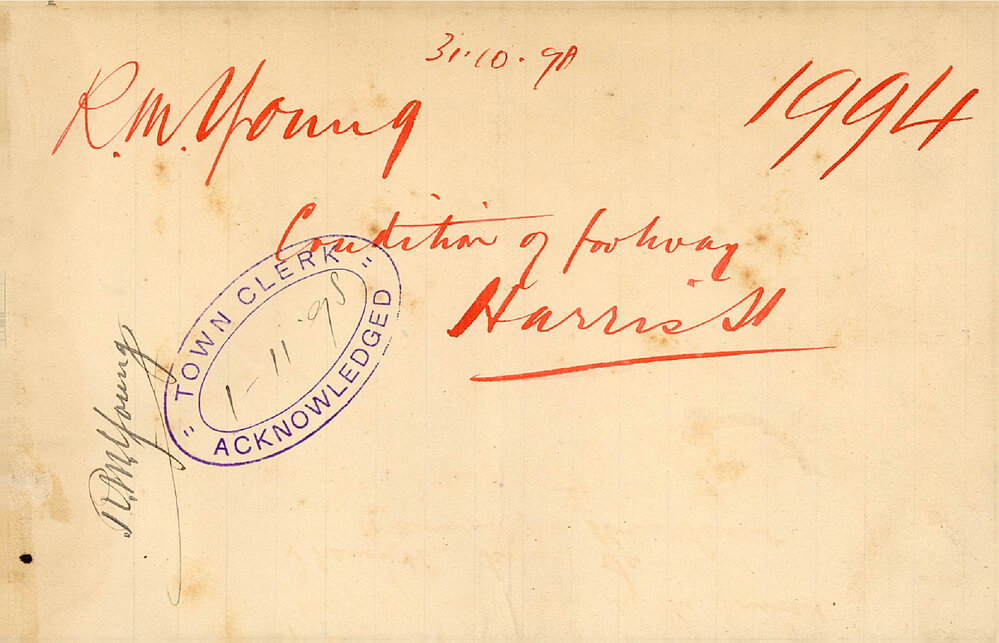 31.10.98
R.M. Young
1994
Condition of footway
Harris St
" TOWN CLERK "
1-11.98
ACKNOWLEDGED
R.M. Young